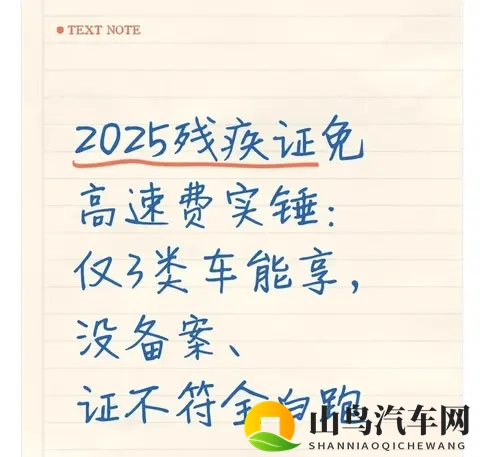 TEXT NOTE
2025残疾证免
高速费实锤:
仅3类车能享,
没备案、
证不符全白跑
山鸟汽车网
SHANNIAOQICHEWANG